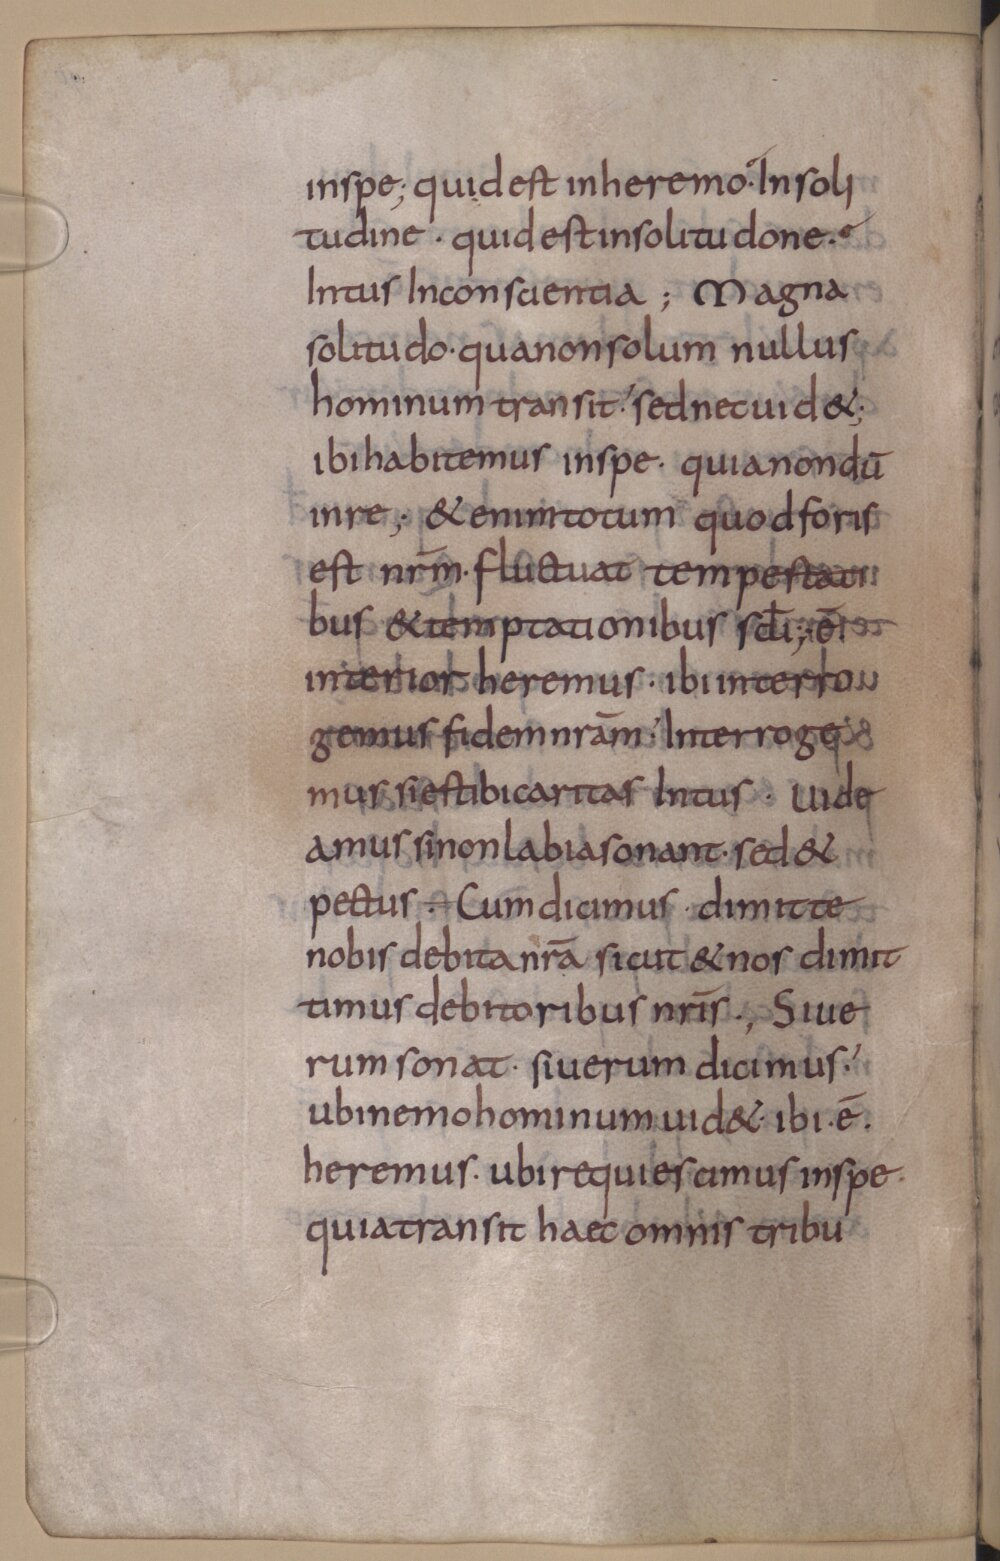 inspe; quid est inheremo? Insoli
tudine · quid est insolitudone ·
Intus Inconscientia ; Magna
solitudo · quanonsolum nullus
hominum transit · sed nec uid&;
ibi habitemus inspe · quianondū
inre ; & enim totum quod foris
est nr̄m · fluctuat tempestati
bus & temptationibus sc̄li ; ē
interior heremus · ibi interro
gemus fidem nrām · Interroge
mus si est ibi caritas Intus · Uide
amus si non labia sonant · sed &
pectus · Cum dicimus · dimitte
nobis debita nrā sicut & nos dimit
timus debitoribus nrīs ., Si ue
rum sonat · si uerum dicimus ·
ubi nemo hominum uid& · ibi · ē ·
heremus · ubi requiescimus inspe ·
quia transit haec omnis tribu